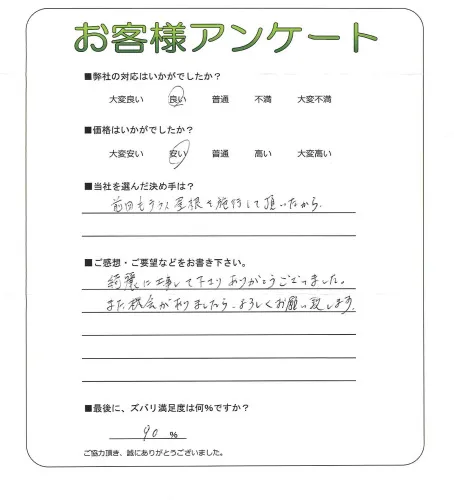 お客様アンケート
■弊社の対応はいかがでしたか？
大変良い 良い 普通 不満 大変不満
■価格はいかがでしたか？
大変安い 安い 普通 高い 大変高い
■当社を選んだ決め手は？
前回もテラス屋根を施行して頂いたから。
■ご感想・ご要望などをお書き下さい。
綺麗に工事して下さりありがとうございました。
また機会がありましたら、よろしくお願い致します。
■最後に、ズバリ満足度は何％ですか？
90 ％
ご協力頂き、誠にありがとうございました。